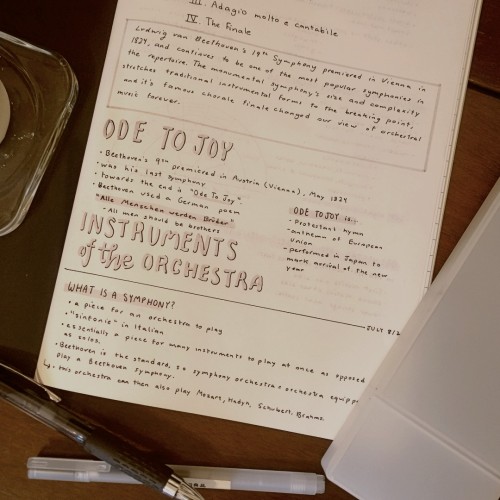 III. Adagio molto e cantabile
IV. The Finale
Ludwig van Beethoven's 9th Symphony premiered in Vienna in
1824, and continues to be one of the most popular symphonies in
the repertoire. The monumental symphony's size and complexity
stretches traditional instrumental forms to the breaking point,
and it's famous chorale finale changed our view of orchestral
music forever.
ODE TO JOY
• Beethoven's 9th premiered in Austria (Vienna), May 1824
• was his last symphony
• towards the end is "Ode To Joy"
• Beethoven used a German poem
"Alle Menschen werden Brüder"
• All men should be brothers
ODE TO JOY is..
- Protestant hymn
- anthem of European
Union
- performed in Japan to
mark arrival of the new
year
INSTRUMENTS
of the ORCHESTRA
JULY 8/2
WHAT IS A SYMPHONY?
• a piece for an orchestra to play
• "Sinfonie" in Italian
• essentially a piece for many instruments to play at once as opposed
as solos.
• Beethoven is the standard, so symphony orchestras orchestra equipp
play a Beethoven Symphony.
↳ this orchestra can then also play Mozart, Hadyn, Schubert, Brahms.